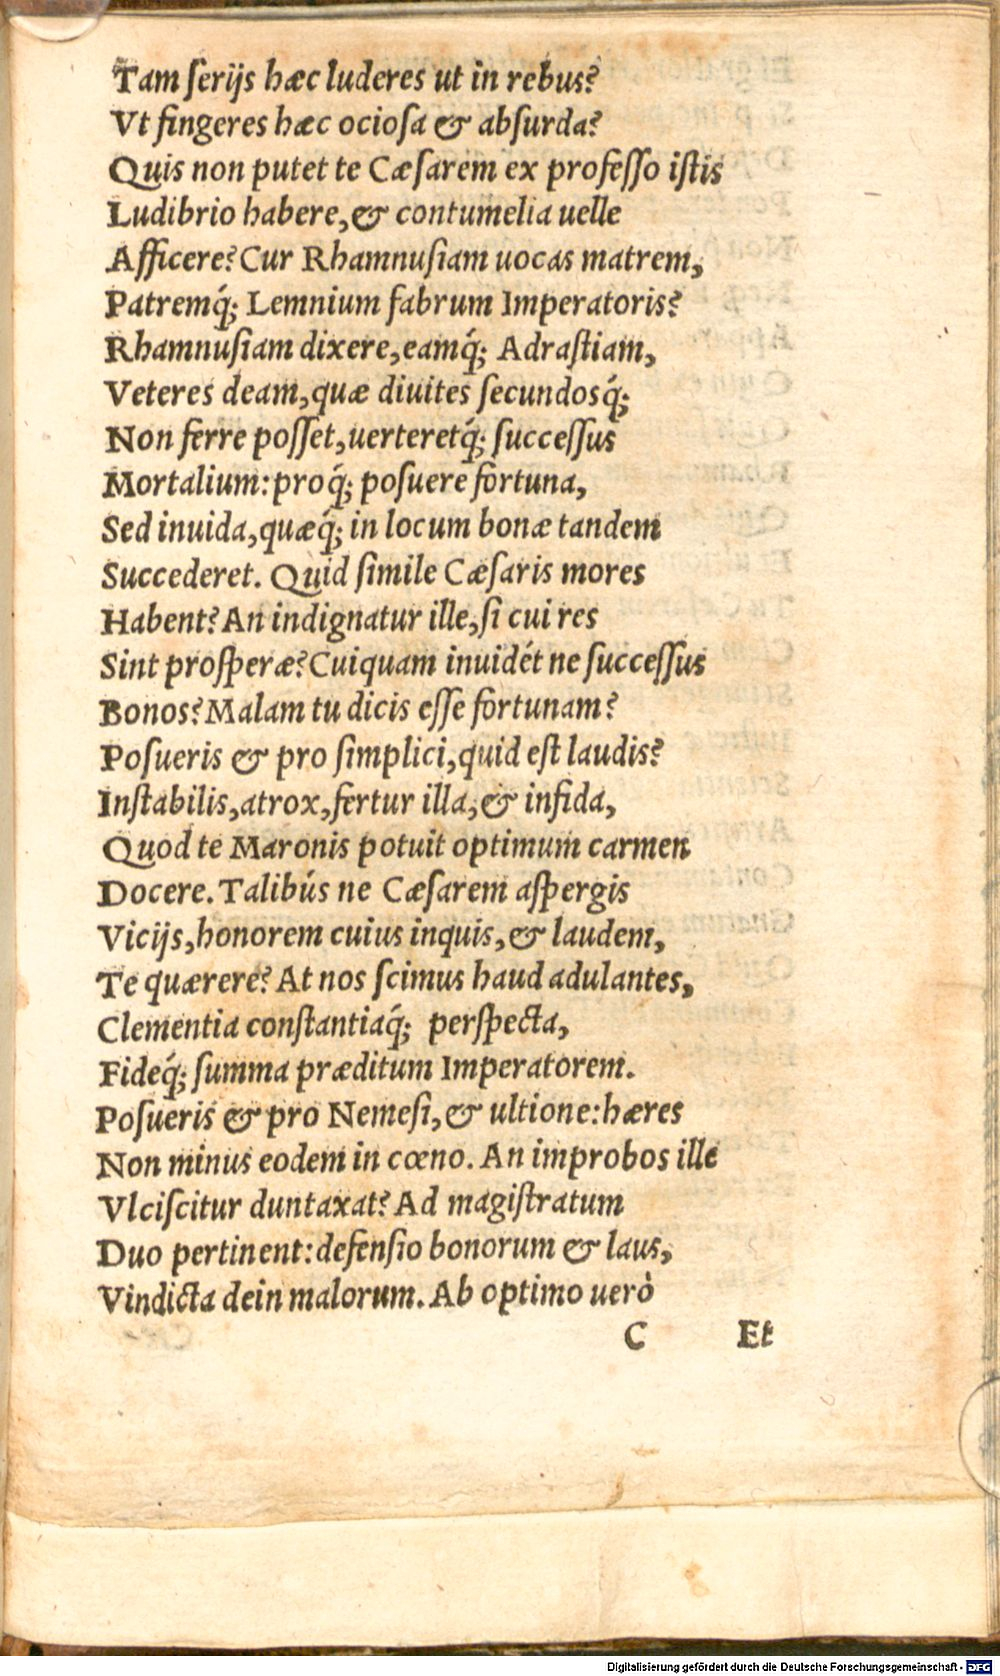 Tam ſerijs hæc luderes ut in rebus?
Vt fingeres hæc ocioſa & abſurda?
Quis non putet te Cæſarem ex profeſſo iſtis
Ludibrio habere,& contumelia uelle
Afficere? Cur Rhamnuſiam uocas matrem,
Patremq́; Lemnium fabrum Imperatoris?
Rhamnuſiam dixere,eamq́; Adraſtiam,
Veteres deam,quæ diuites ſecundosq́;
Non ferre poſſet,uerteretq́; ſucceſſus
Mortalium:proq́; poſuere fortuna,
Sed inuida,quæq́; in locum bonæ tandem
Succederet. Quid ſimile Cæſaris mores
Habent? An indignatur ille,ſi cui res
Sint proſperæ? Cuiquam inuidét ne ſucceſſus
Bonos? Malam tu dicis eſſe fortunam?
Poſueris & pro ſimplici,quid eſt laudis?
Inſtabilis,atrox,fertur illa,& infida,
Quod te Maronis potuit optimum carmen
Docere. Talibús ne Cæſarem aſpergis
Vicijs,honorem cuius inquis,& laudem,
Te quærere? At nos ſcimus haud adulantes,
Clementia conſtantiaq́; perſpecta,
Fideq́; ſumma præditum Imperatorem.
Poſueris & pro Nemeſi,& ultione:hæres
Non minus eodem in cœno. An improbos ille
Vlciſcitur duntaxat? Ad magiſtratum
Duo pertinent:defenſio bonorum & laus,
Vindicta dein malorum. Ab optimo uerò
C Et
Digitalisierung gefördert durch die Deutsche Forschungsgemeinschaft - DFG